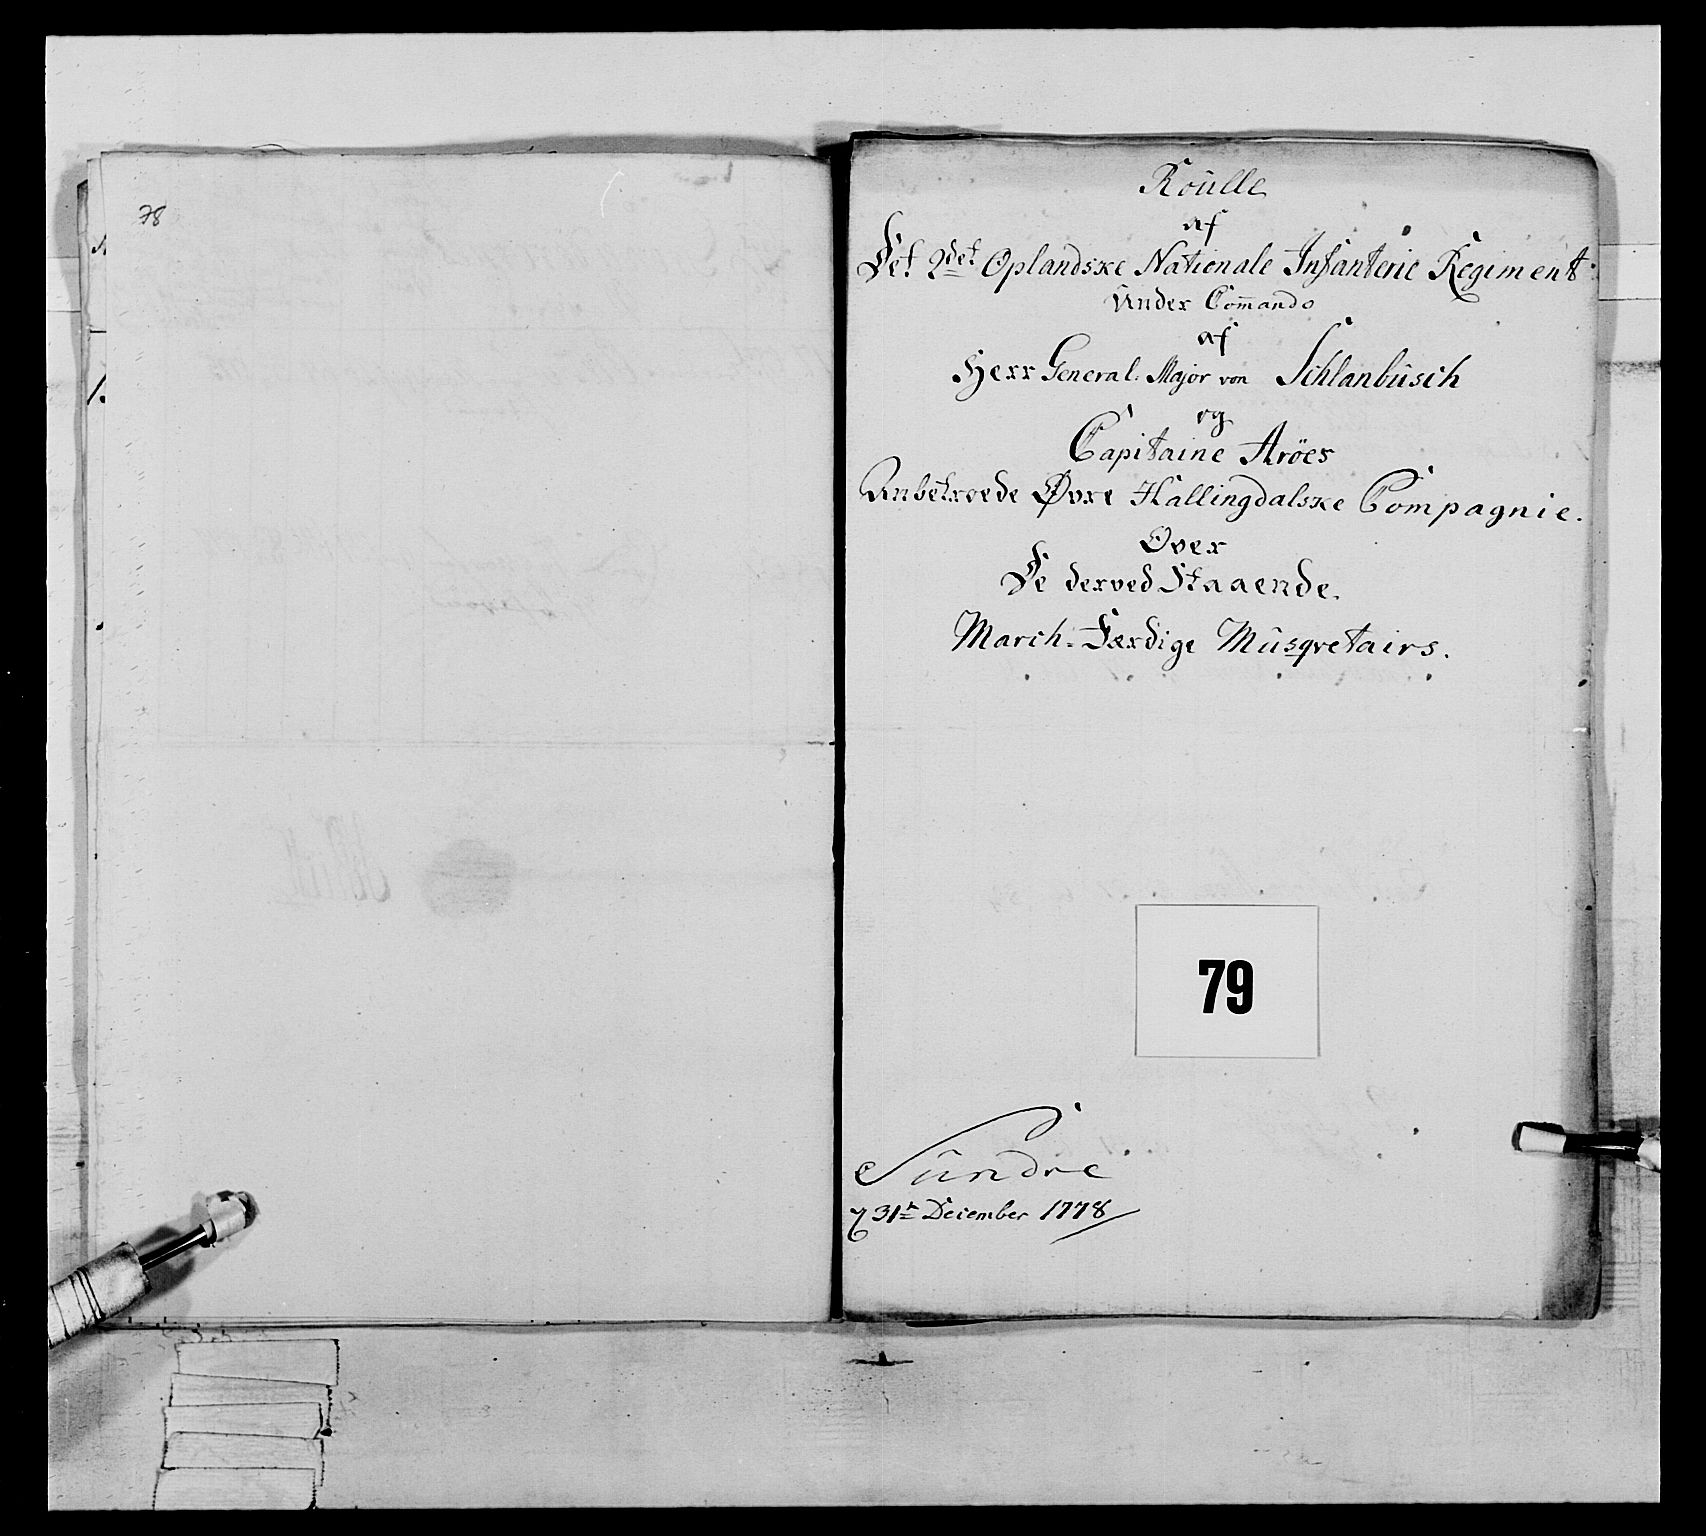 78
Roulle
af
Det 2det Oplandske Nationale Infanterie Regiment
Under Com̄ando
af
Herr General. Major von Schlanbusch
og
Capitaine Aröes
Anbetroede Øvre Hallingdalske Compagnie.
Over
De derved Staaende.
March-Færdige Musqvetairs.
79
Sundre
31te December 1778